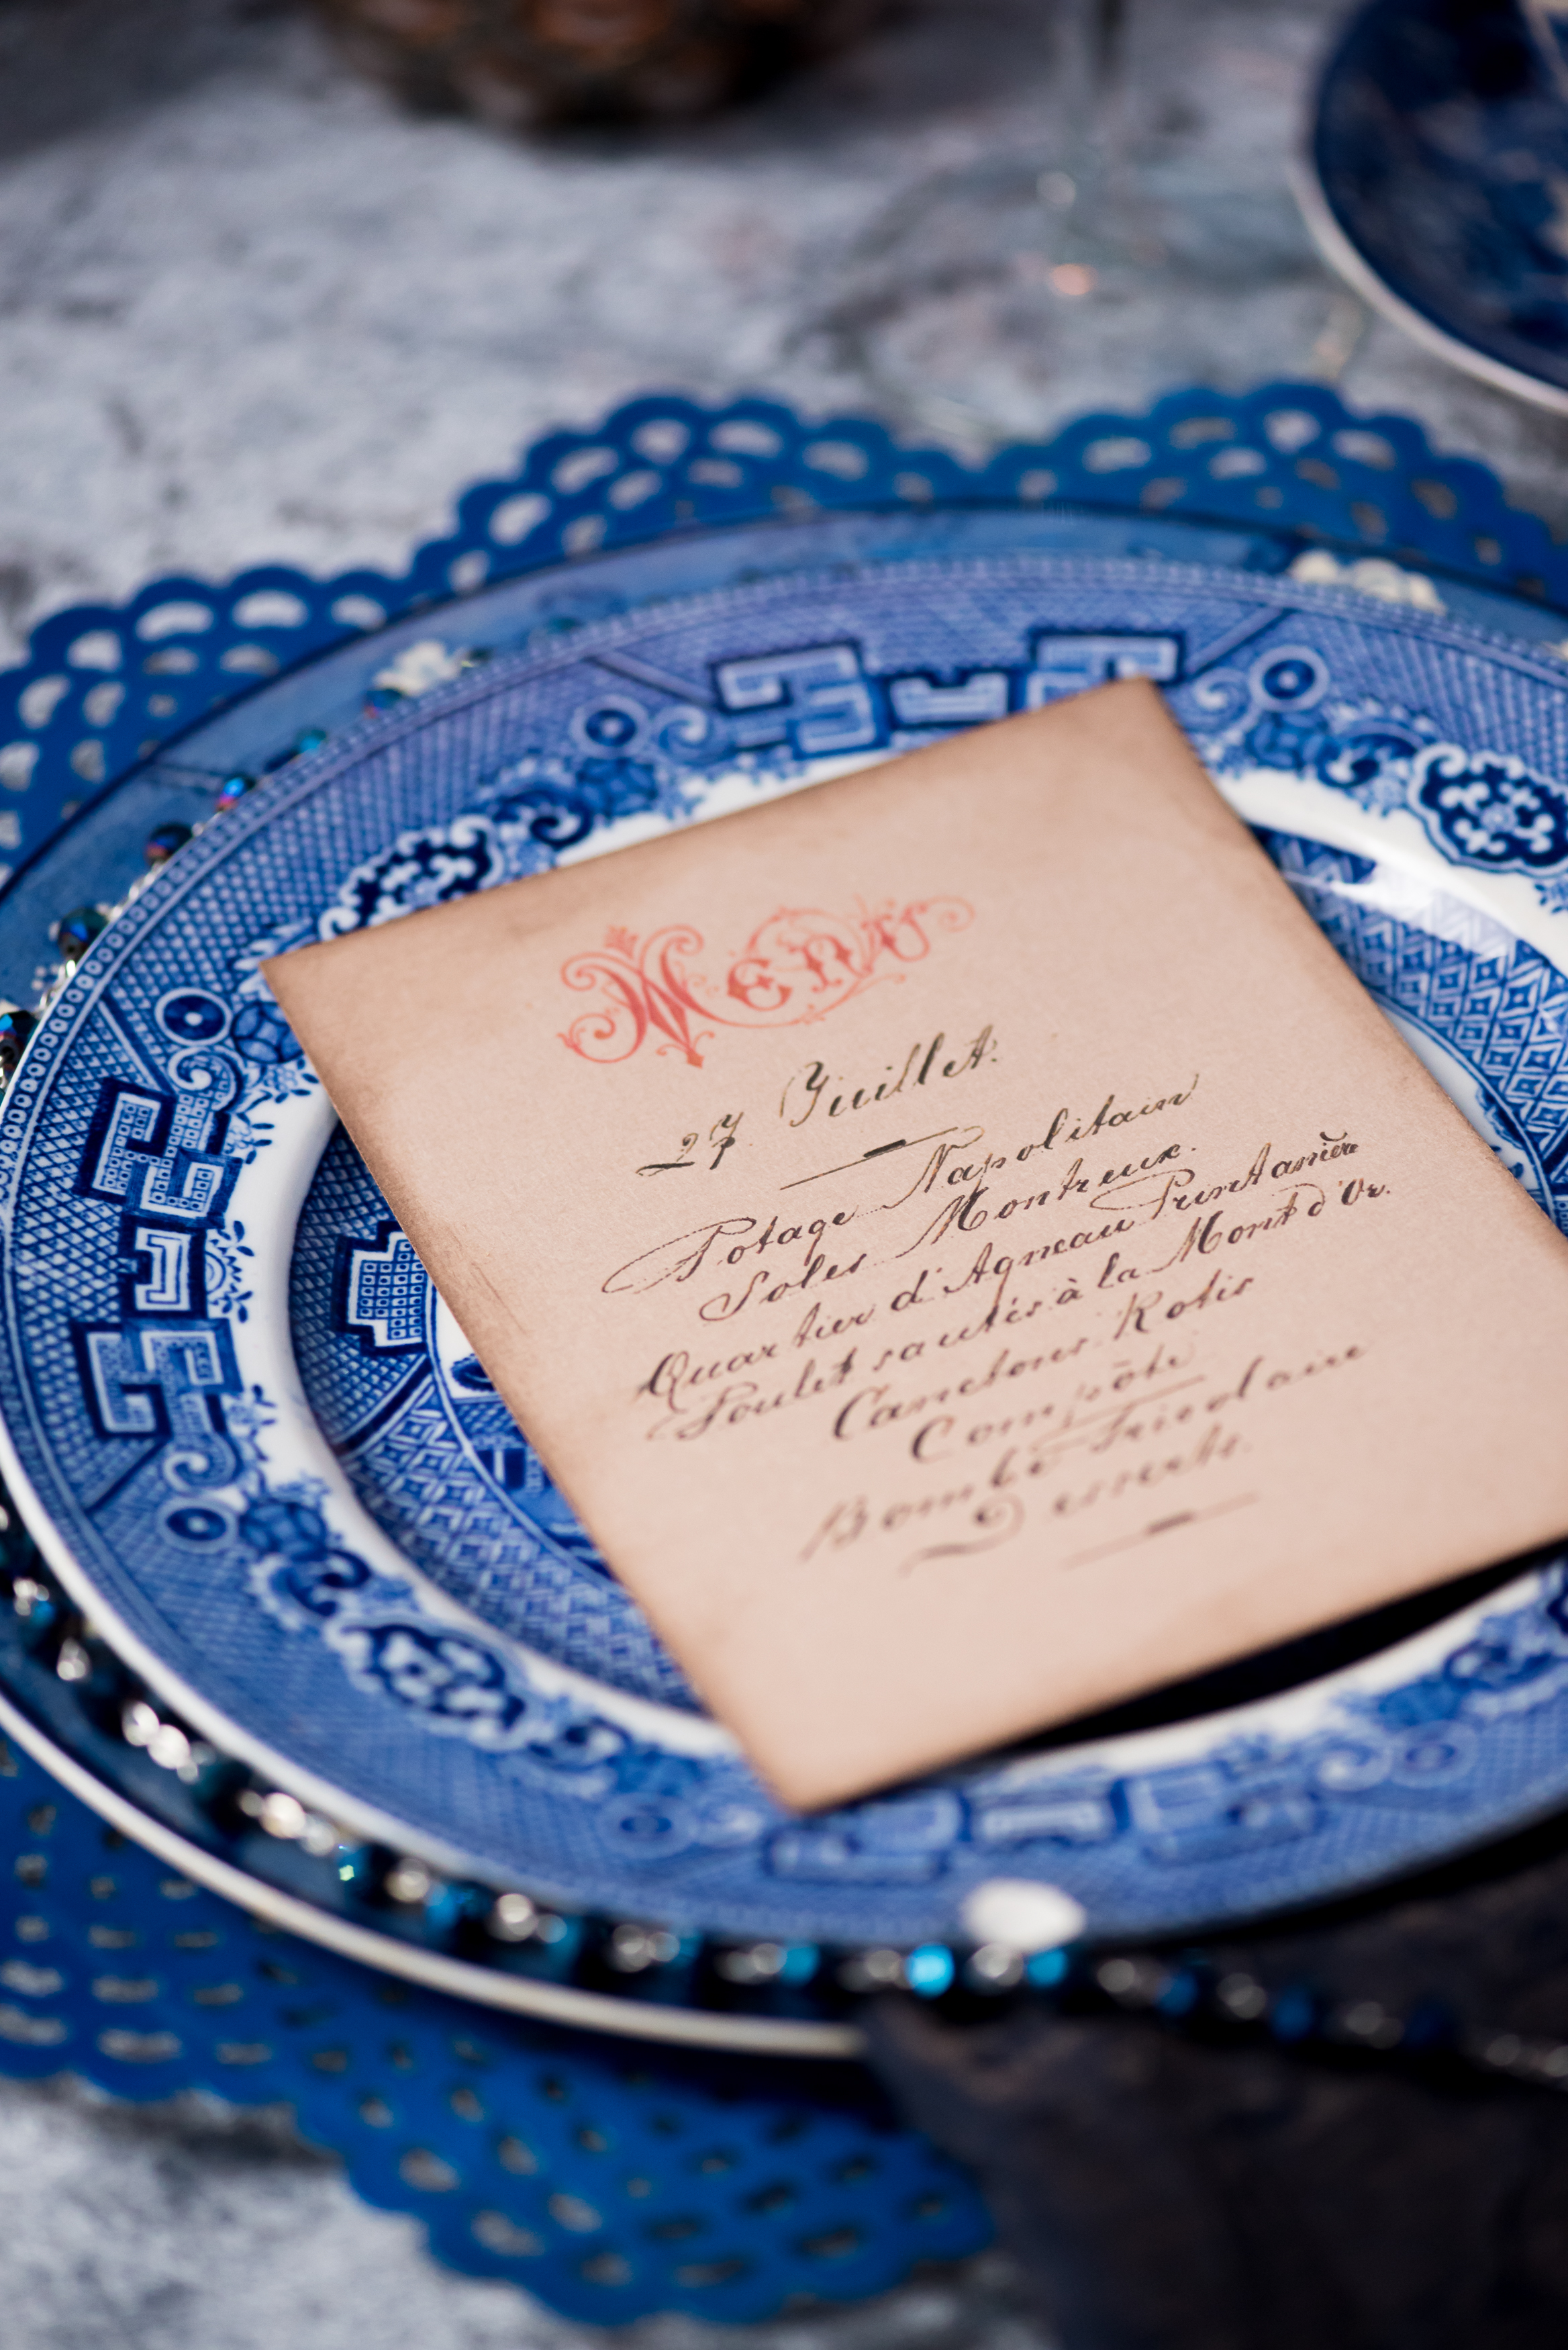 Menu
27 Juillet.
Potage Napolitain
Soles Montreux.
Quartier d'Agneau Printanière
Poulet sautés à la Mont d'Or.
Canetons Rotis
Compôte
Bombe
Desserts.